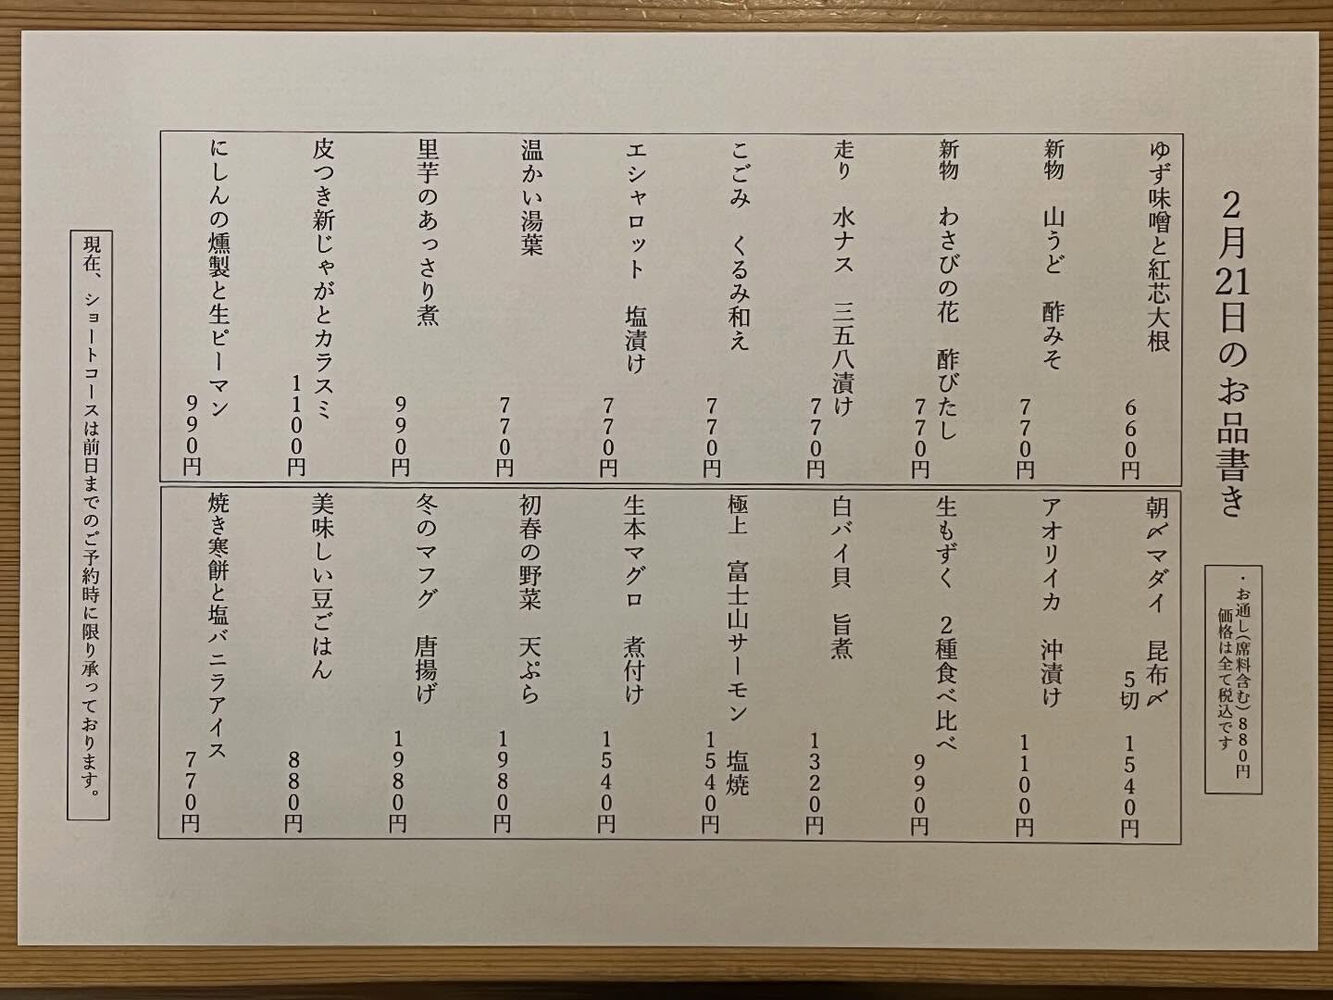 2月21日のお品書き
・お通し(席料含む)880円
価格は全て税込です
ゆず味噌と紅芯大根
660円
新物　山うど　酢みそ
770円
新物　わさびの花　酢びたし
770円
走り　水ナス　三五八漬け
770円
こごみ　くるみ和え
770円
エシャロット　塩漬け
770円
温かい湯葉
770円
里芋のあっさり煮
990円
皮つき新じゃがとカラスミ
1100円
にしんの燻製と生ピーマン
990円
朝〆マダイ　昆布〆
5切　1540円
アオリイカ　沖漬け
1100円
生もずく　2種食べ比べ
990円
白バイ貝　旨煮
1320円
極上　富士山サーモン　塩焼
1540円
生本マグロ　煮付け
1540円
初春の野菜　天ぷら
1980円
冬のマフグ　唐揚げ
1980円
美味しい豆ごはん
880円
焼き寒餅と塩バニラアイス
770円
現在、ショートコースは前日までのご予約時に限り承っております。